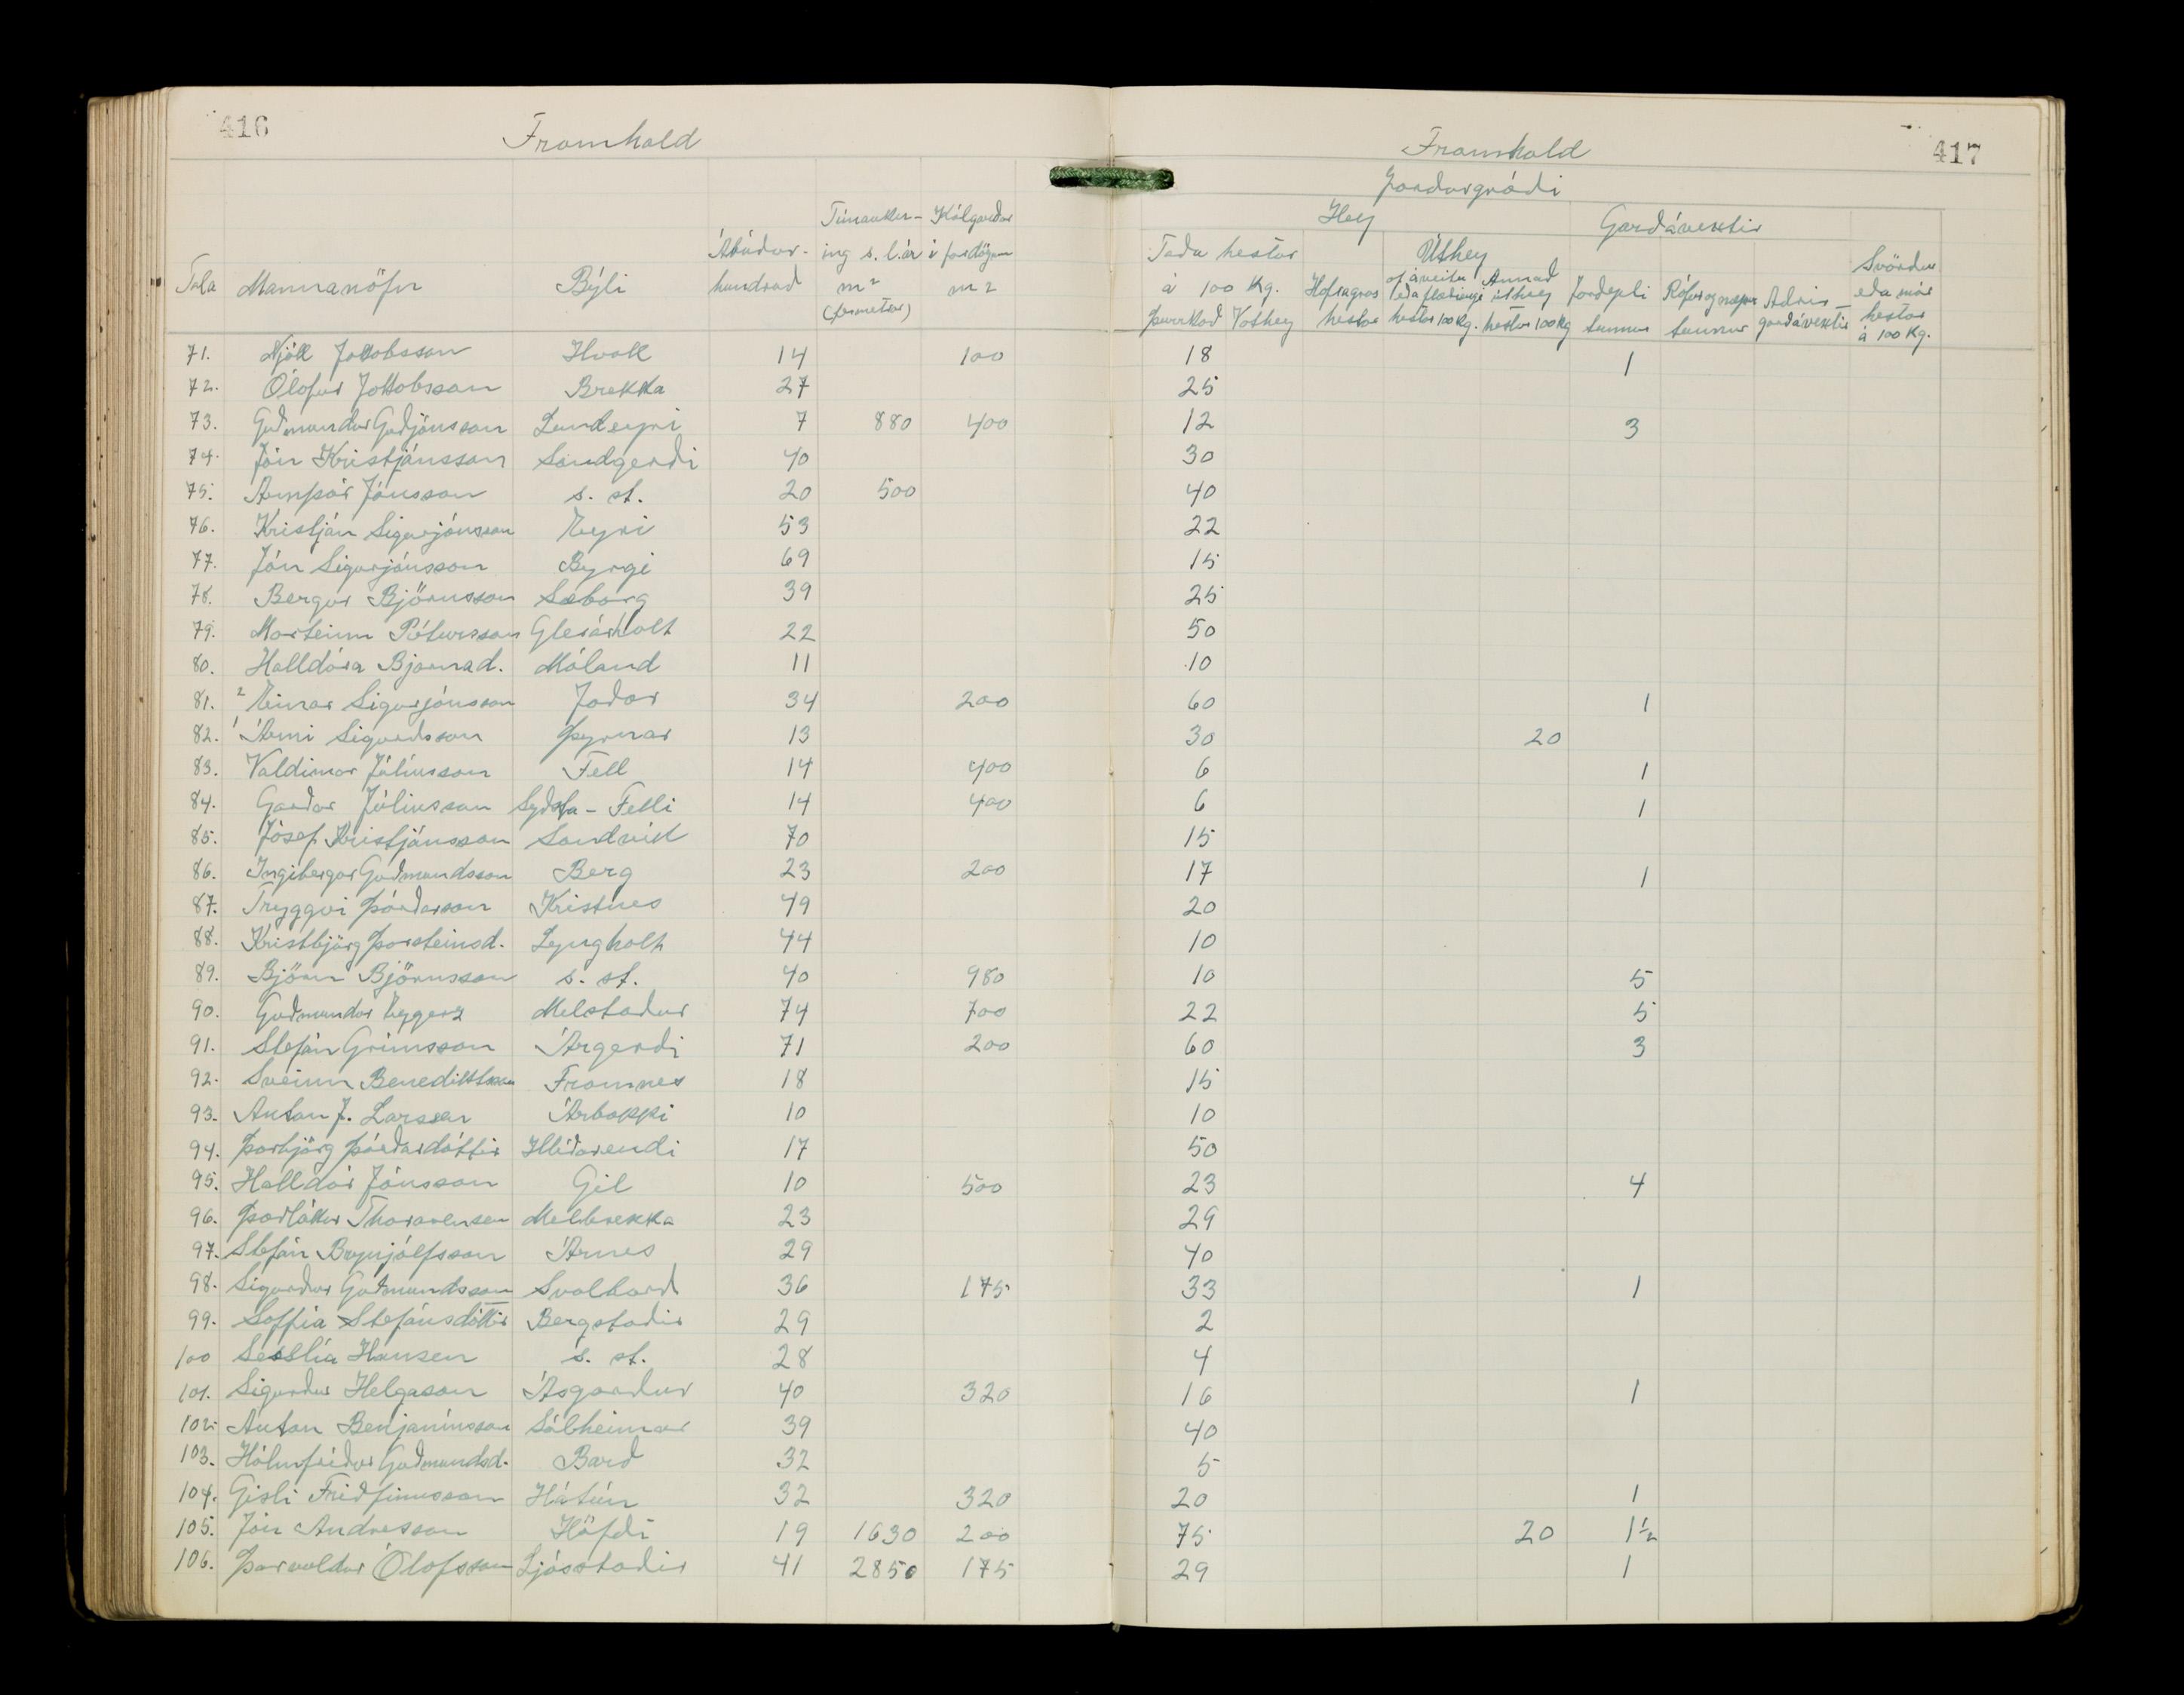 416
Framhald
Tala Mannanöfn Býli Ábúðar-hundrað Túnaukn-ing s.l. ár m² (fermetrar) Kálgarðar í fardögum m²
71. Njáll Jakobsson Hvoll 14 100
72. Ólafur Jakobsson Brekka 27
73. Guðmundur Guðjónsson Landeyri 7 880 400
74. Jón Kristjánsson Sandgerði 40
75. Arnþór Jónsson s. st. 20 500
76. Kristján Sigurjónsson Eyri 53
77. Jón Sigurjónsson Byrgi 69
78. Bergur Björnsson Sæborg 39
79. Marteinn Pétursson Glerárholt 22
80. Halldóra Bjarnad. Móland 11
81. 2 Einar Sigurjónsson Jaðar 34 200
82. 1 Árni Sigurðsson Þyrnar 13
83. Valdimar Júlíusson Fell 14 400
84. Garðar Júlíusson Syðsta-Felli 14 400
85. Jósef Kristjánsson Sandvík 70
86. Ingibergur Guðmundsson Berg 23 200
87. Tryggvi Þórðarson Kristnes 49
88. Kristbjörg Þorsteinsd. Lyngholt 44
89. Björn Björnsson s. st. 40 980
90. Guðmundur Eggerz Melstaður 74 700
91. Stefán Grímsson Árgerði 71 200
92. Sveinn Benediktsson Framnes 18
93. Anton J. Larssen Árbakki 10
94. Þorbjörg Þórðardóttir Hlíðarendi 17
95. Halldór Jónsson Gil 10 500
96. Þorlákur Thorarensen Melbrekka 23
97. Stefán Brynjólfsson Árnes 29
98. Sigurður Guðmundsson Svalbarð 36 175
99. Soffía Stefánsdóttir Bergstaðir 29
100 Sesslía Hansen s. st. 28
101. Sigurður Helgason Ásgarður 40 320
102. Anton Benjamínsson Sólheimar 39
103. Hólmfríður Guðmundsd. Barð 32
104. Gísli Friðfinnsson Hátún 32 320
105. Jón Andrésson Höfði 19 1630 200
106. Þorvaldur Ólafsson Ljósstaðir 41 2850 175
417
Framhald
Jarðargróði
Hey Garðávextir
Taða hestar á 100 Kg. Úthey Svörður eða mór hestar á 100 Kg.
Þurrkað Vothey Hafragras hestar af áveitu eða flæðiengi hestar 100 Kg. Annað úthey hestar 100 Kg Jarðepli tunnur Rófur og næpur tunnur Aðrir garðávextir
18 1
25
12 3
30
40
22
15
25
50
10
60 1
30 20
6 1
6 1
15
17 1
20
10
10 5
22 5
60 3
15
10
50
23 4
29
40
33 1
2
4
16 1
40
5
20 1
75 20 1½
29 1